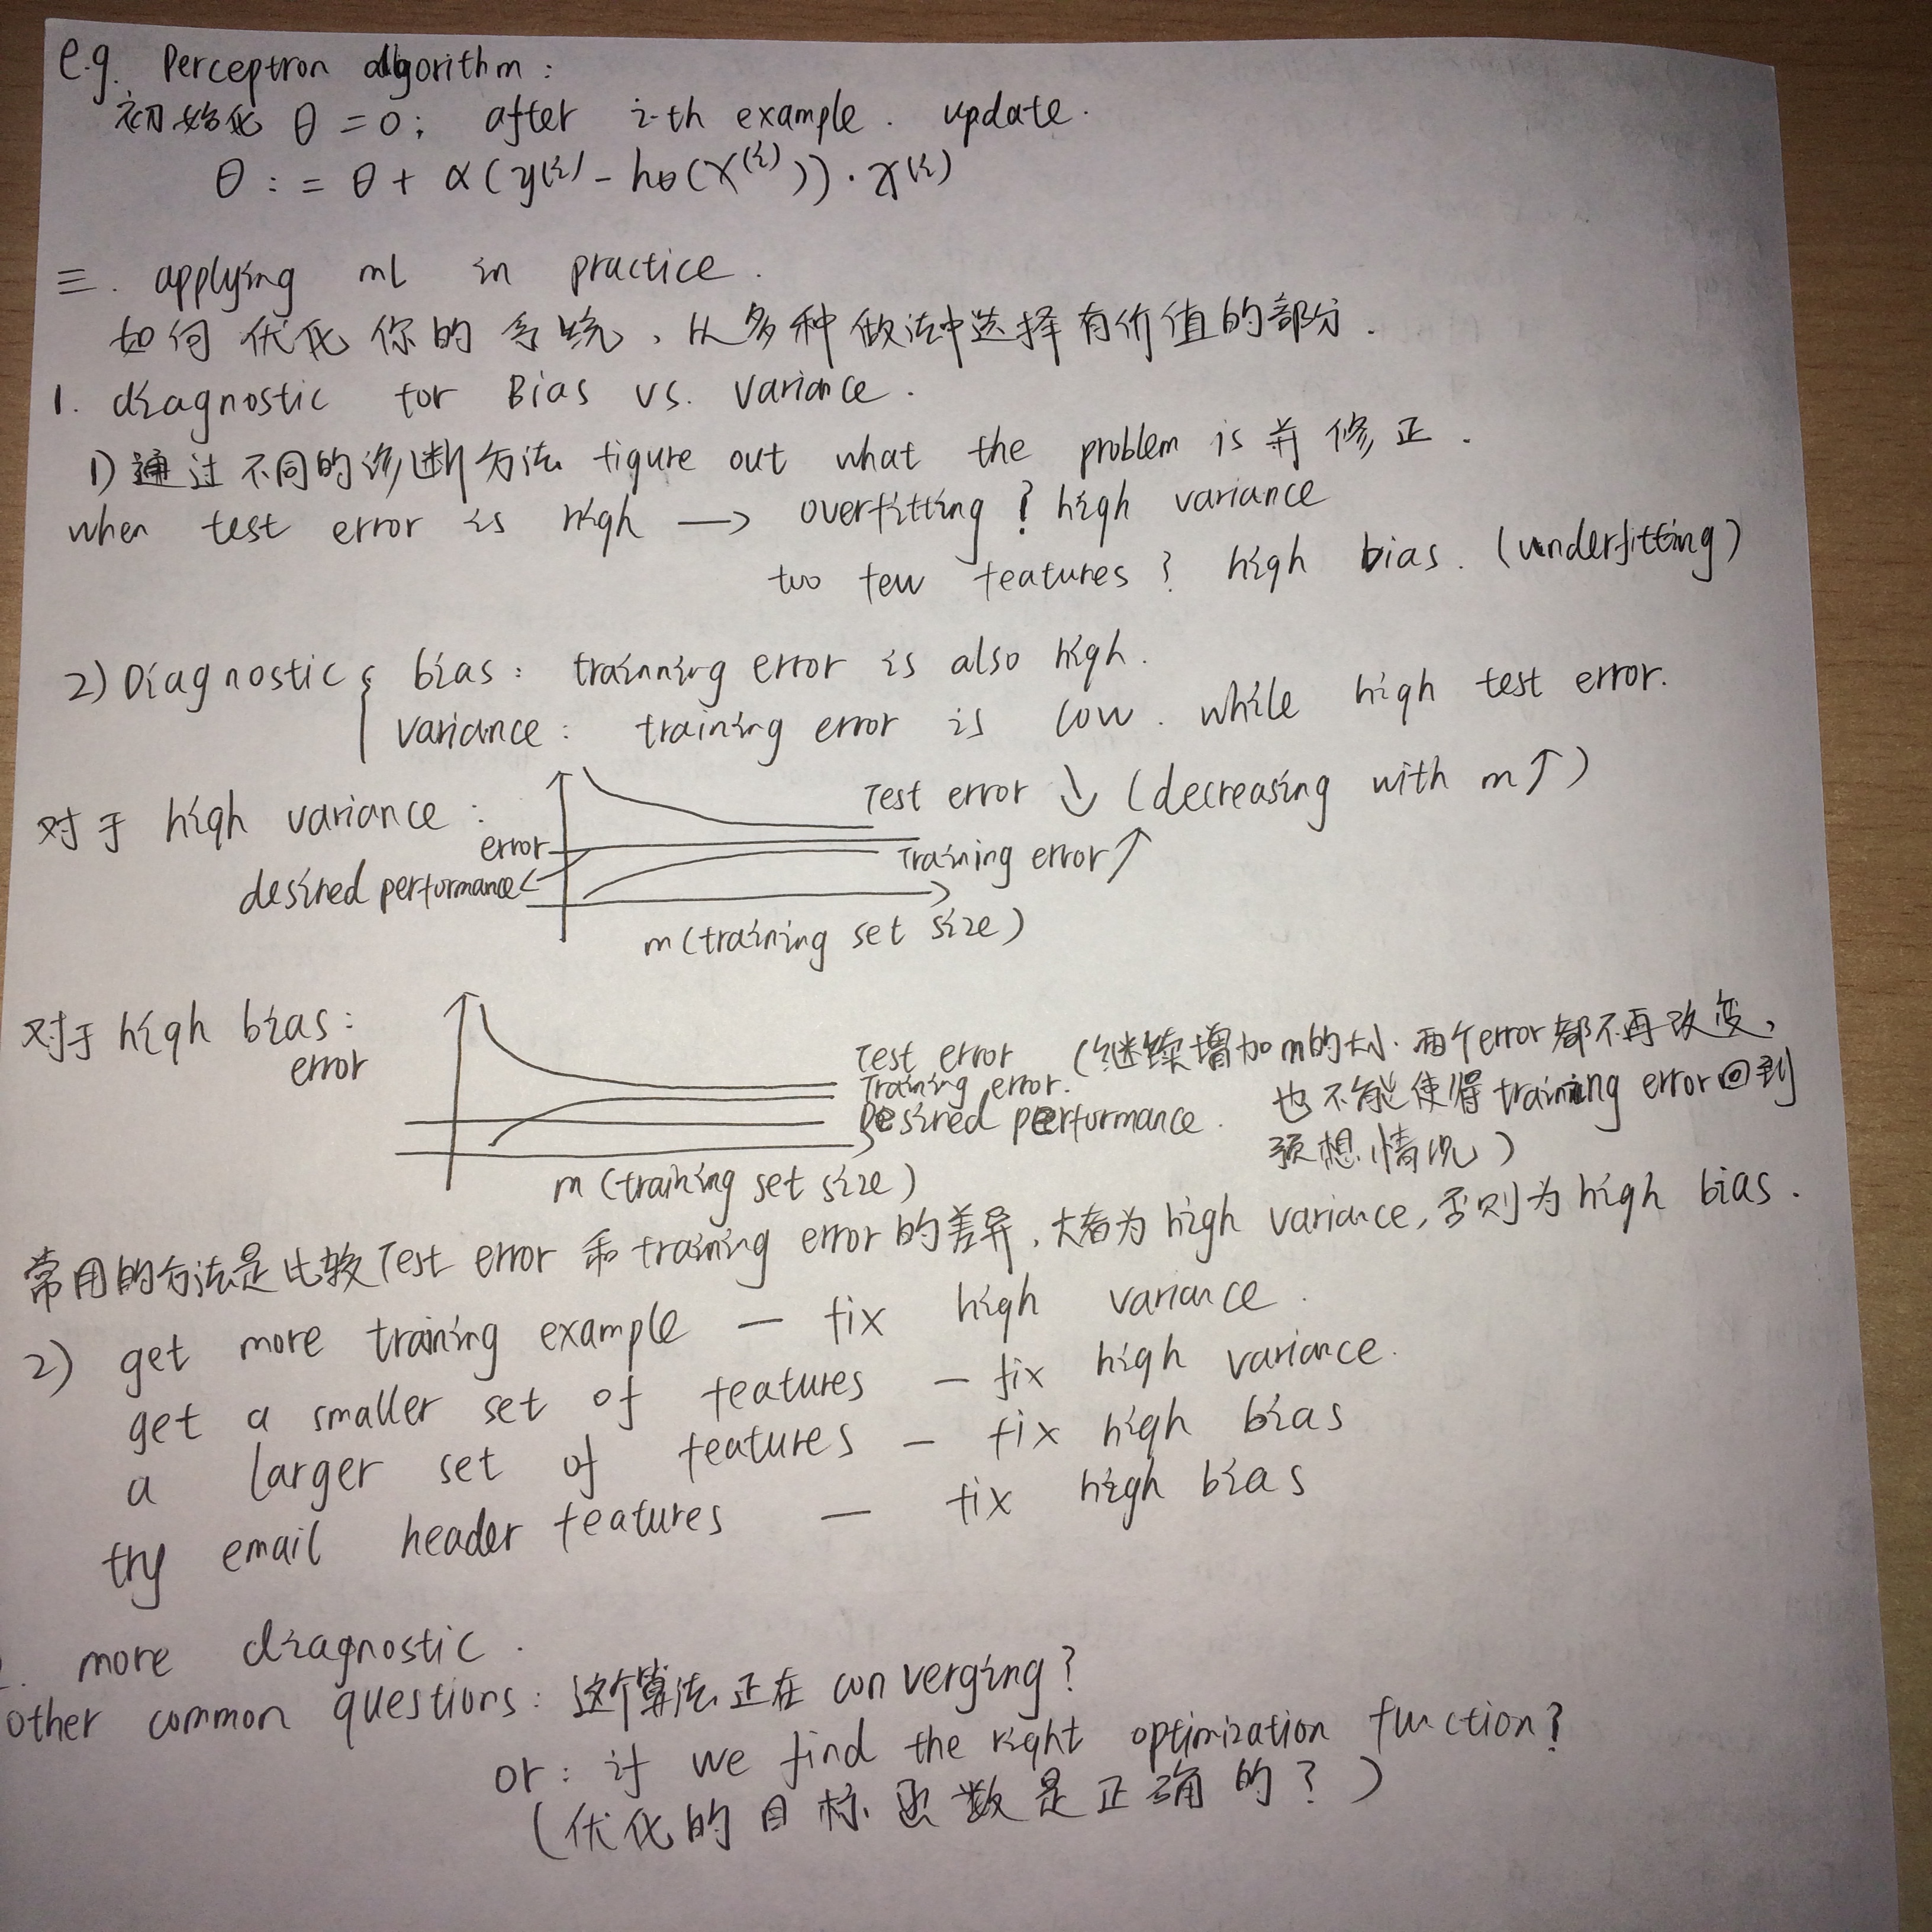 e.g. Perceptron algorithm:
初始化 θ = 0; after i-th example. update.
θ := θ + α(y⁽ⁱ⁾ - hθ(x⁽ⁱ⁾))·x⁽ⁱ⁾
三. applying ml in practice.
如何优化你的系统、从多种做法中选择有价值的部分.
1. diagnostic for Bias vs. variance.
1) 通过不同的诊断方法 figure out what the problem is 并修正.
when test error is high → overfitting? high variance
too few features? high bias. (underfitting)
2) Diagnostic { bias: trainning error is also high.
variance: training error is low. while high test error.
对于 high variance:
Test error ↓ (decreasing with m↑)
error
Training error ↑
desired performance
m (training set size)
对于 high bias:
error
Test error (继续增加m的大小. 两个error都不再改变,
Training error.
也不能使得training error回到
Desired performance.
预想情况)
m (training set size)
常用的方法是比较Test error 和 training error的差异, 大者为high variance, 否则为high bias.
2) get more training example — fix high variance.
get a smaller set of features — fix high variance.
a larger set of features — fix high bias
try email header features — fix high bias
. more diagnostic.
other common questions: 这个算法正在 converging?
or: if we find the right optimization function?
(优化的目标函数是正确的?)